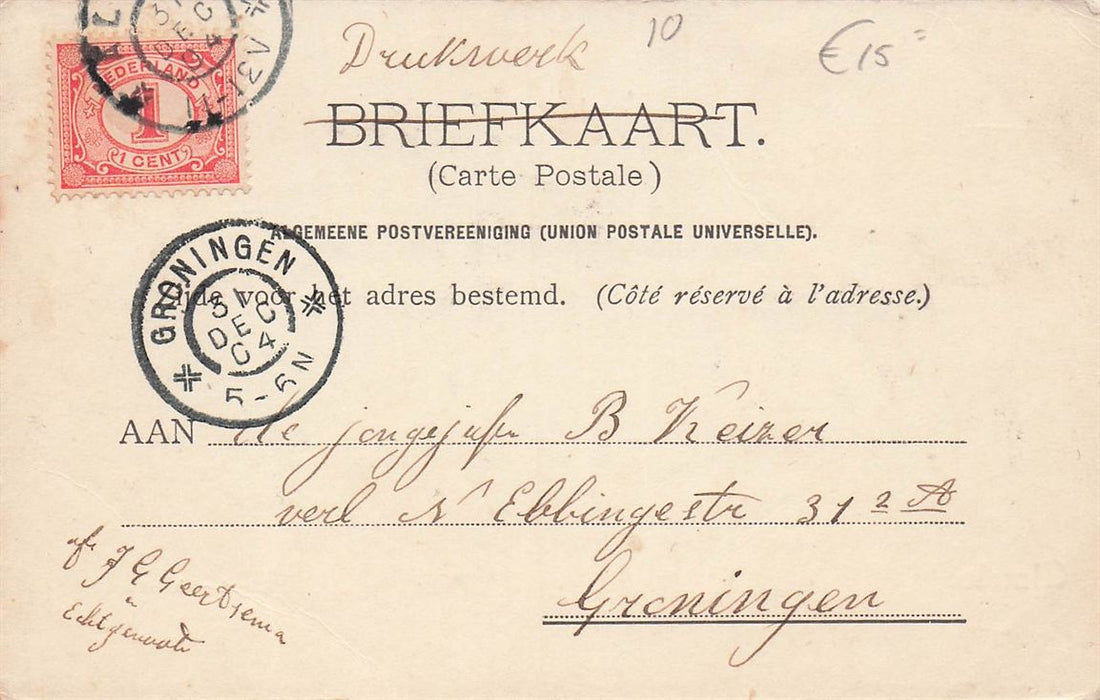 Drukwerk 10 € 15=
BRIEFKAART.
(Carte Postale)
ALGEMEENE POSTVEREENIGING (UNION POSTALE UNIVERSELLE).
Zijde voor het adres bestemd. (Côté réservé à l'adresse.)
NEDERLAND
1
1 CENT
31
DEC
04
11-1 3V
GRONINGEN
31
DEC
04
5-6N
AAN de jongejufr B Keizer
verl N Ebbingestr 31 2 A
Groningen
afz J G Geertsema
en
Echtgenoote